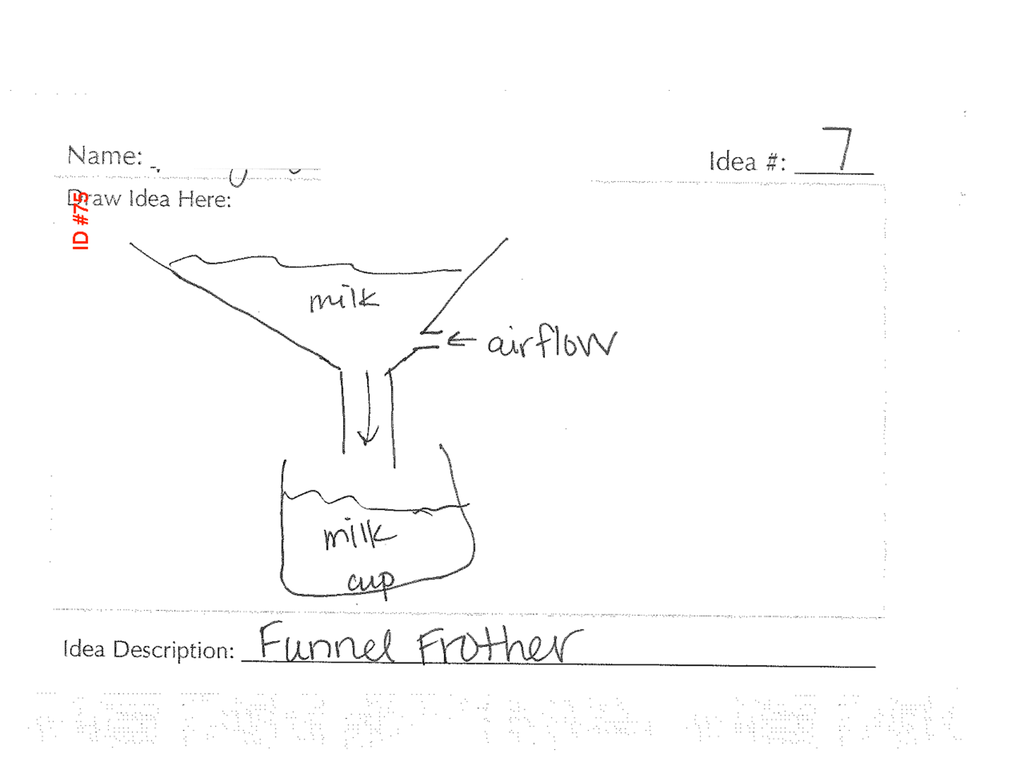 Name:
Idea #: 7
Draw Idea Here:
ID #75
milk
← airflow
milk
cup
Idea Description: Funnel Frother